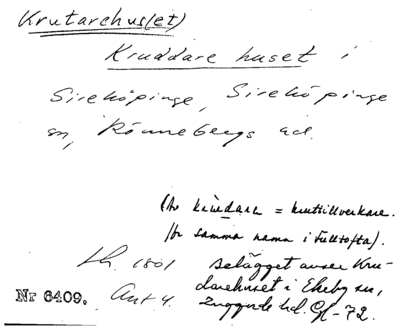 Krutarehus(et)
Kruddare huset i
Sireköpinge, Sireköpinge
sn, Rönnebergs hd.
(Av krudare = kruttillverkare.
Jfr samma namn i Fulltofta).
Lh. 1801 Belägget avser Kru-
darehuset i Ekeby sn,
Nr 6409. Ant 4. Luggude hd. Gl-72.